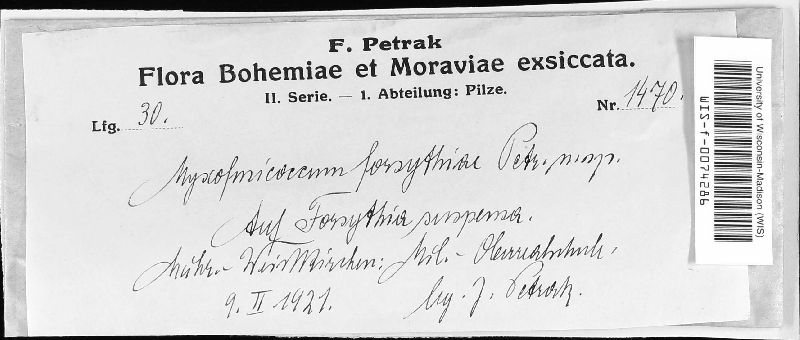 F. Petrak
Flora Bohemiae et Moraviae exsiccata.
II. Serie. — 1. Abteilung: Pilze.
Lfg. 30.
Nr. 1470.
Myxofusicoccum forsythiae Petr. n. sp.
Auf Forsythia suspensa.
Mähr.- Weisskirchen: Mil.- Oberrealschule,
9. II 1921. lg. J. Petrak.
University of Wisconsin-Madison (WIS)
WIS-f-0074286